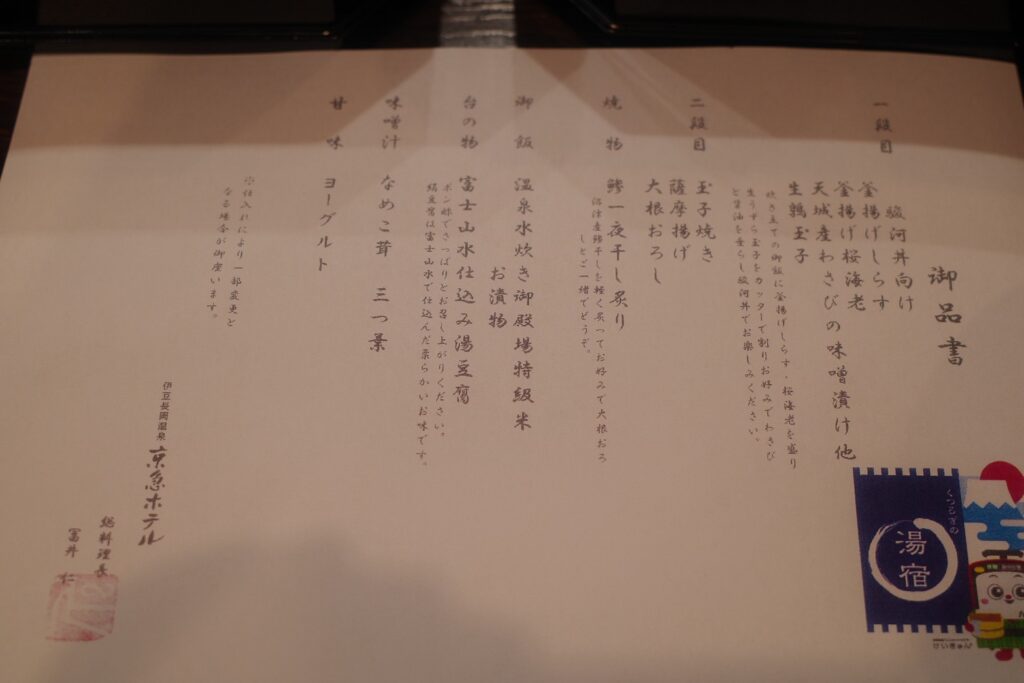 御品書
一段目
駿河丼向け
釜揚げしらす
釜揚げ桜海老
天城産わさびの味噌漬け他
生鶉玉子
炊き立ての御飯に釜揚げしらす・桜海老を盛り
生うずら玉子をカッターで割りお好みでわさび
と醤油を垂らし駿河丼でお楽しみください。
二段目
玉子焼き
薩摩揚げ
大根おろし
焼物
鯵一夜干し炙り
沼津産鯵干しを軽く炙ってお好みで大根おろ
しとご一緒でどうぞ。
御飯
温泉水炊き御殿場特級米
お漬物
台の物
富士山水仕込み湯豆腐
ポン酢でさっぱりとお召し上がりください。
絹豆腐は富士山水で仕込んだ柔らかいお味です。
味噌汁
なめこ茸 三つ葉
甘味
ヨーグルト
※仕入れにより一部変更と
なる場合が御座います。
伊豆長岡温泉 京急ホテル
総料理長
冨井 仁
くつろぎの
湯宿
けいきゅん